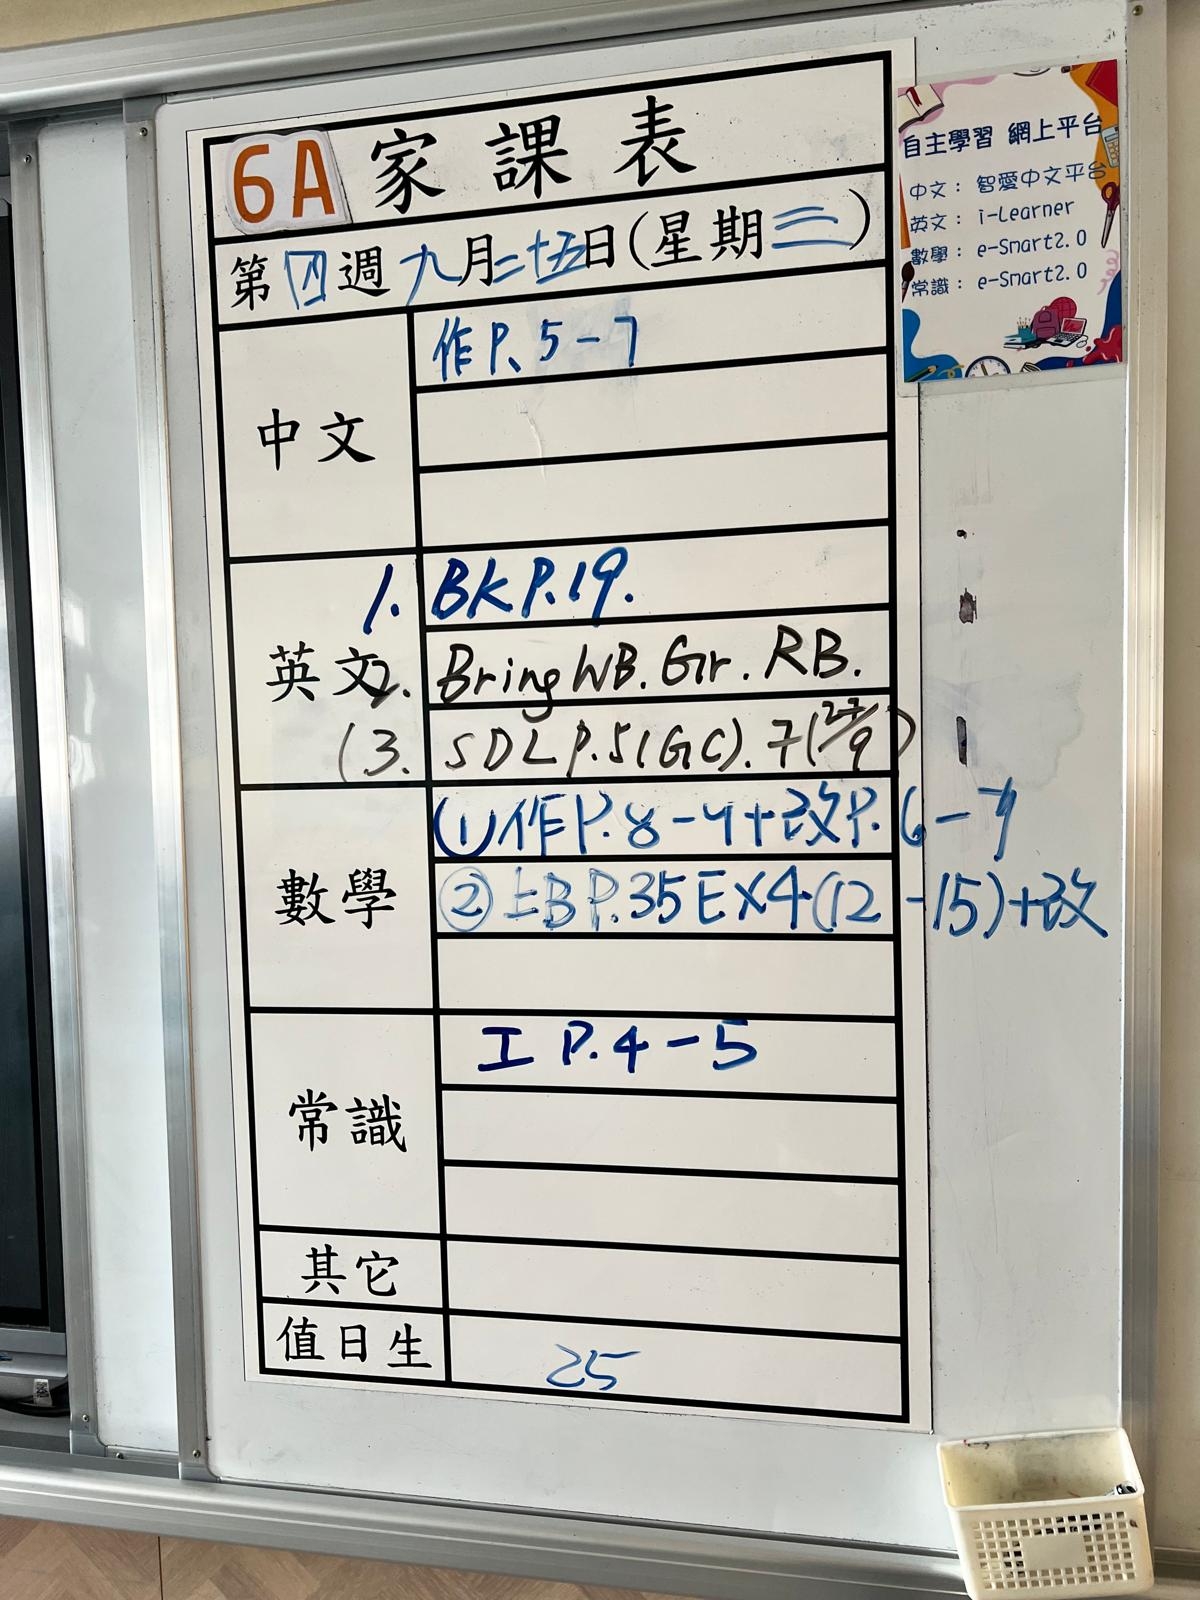 6A 家課表
第四週九月二十五日(星期三)
中文
作P. 5-7
英文
1. BK P.19.
2. Bring WB. Gr. RB.
(3. SDL P.5(GC). 7(27/9)
數學
(1)作P.8-9+改P.6-7
②上B P.35 EX4(12-15)+改
常識
工 P.4-5
其它
值日生
25
自主學習 網上平台
中文： 智愛中文平台
英文： i-Learner
數學： e-Smart2.0
常識： e-Smart2.0